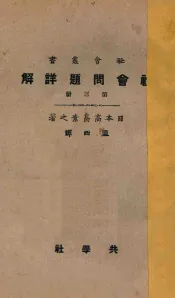 社會叢書
社會問題詳解
日本高畠素之著
盟西譯
共學社